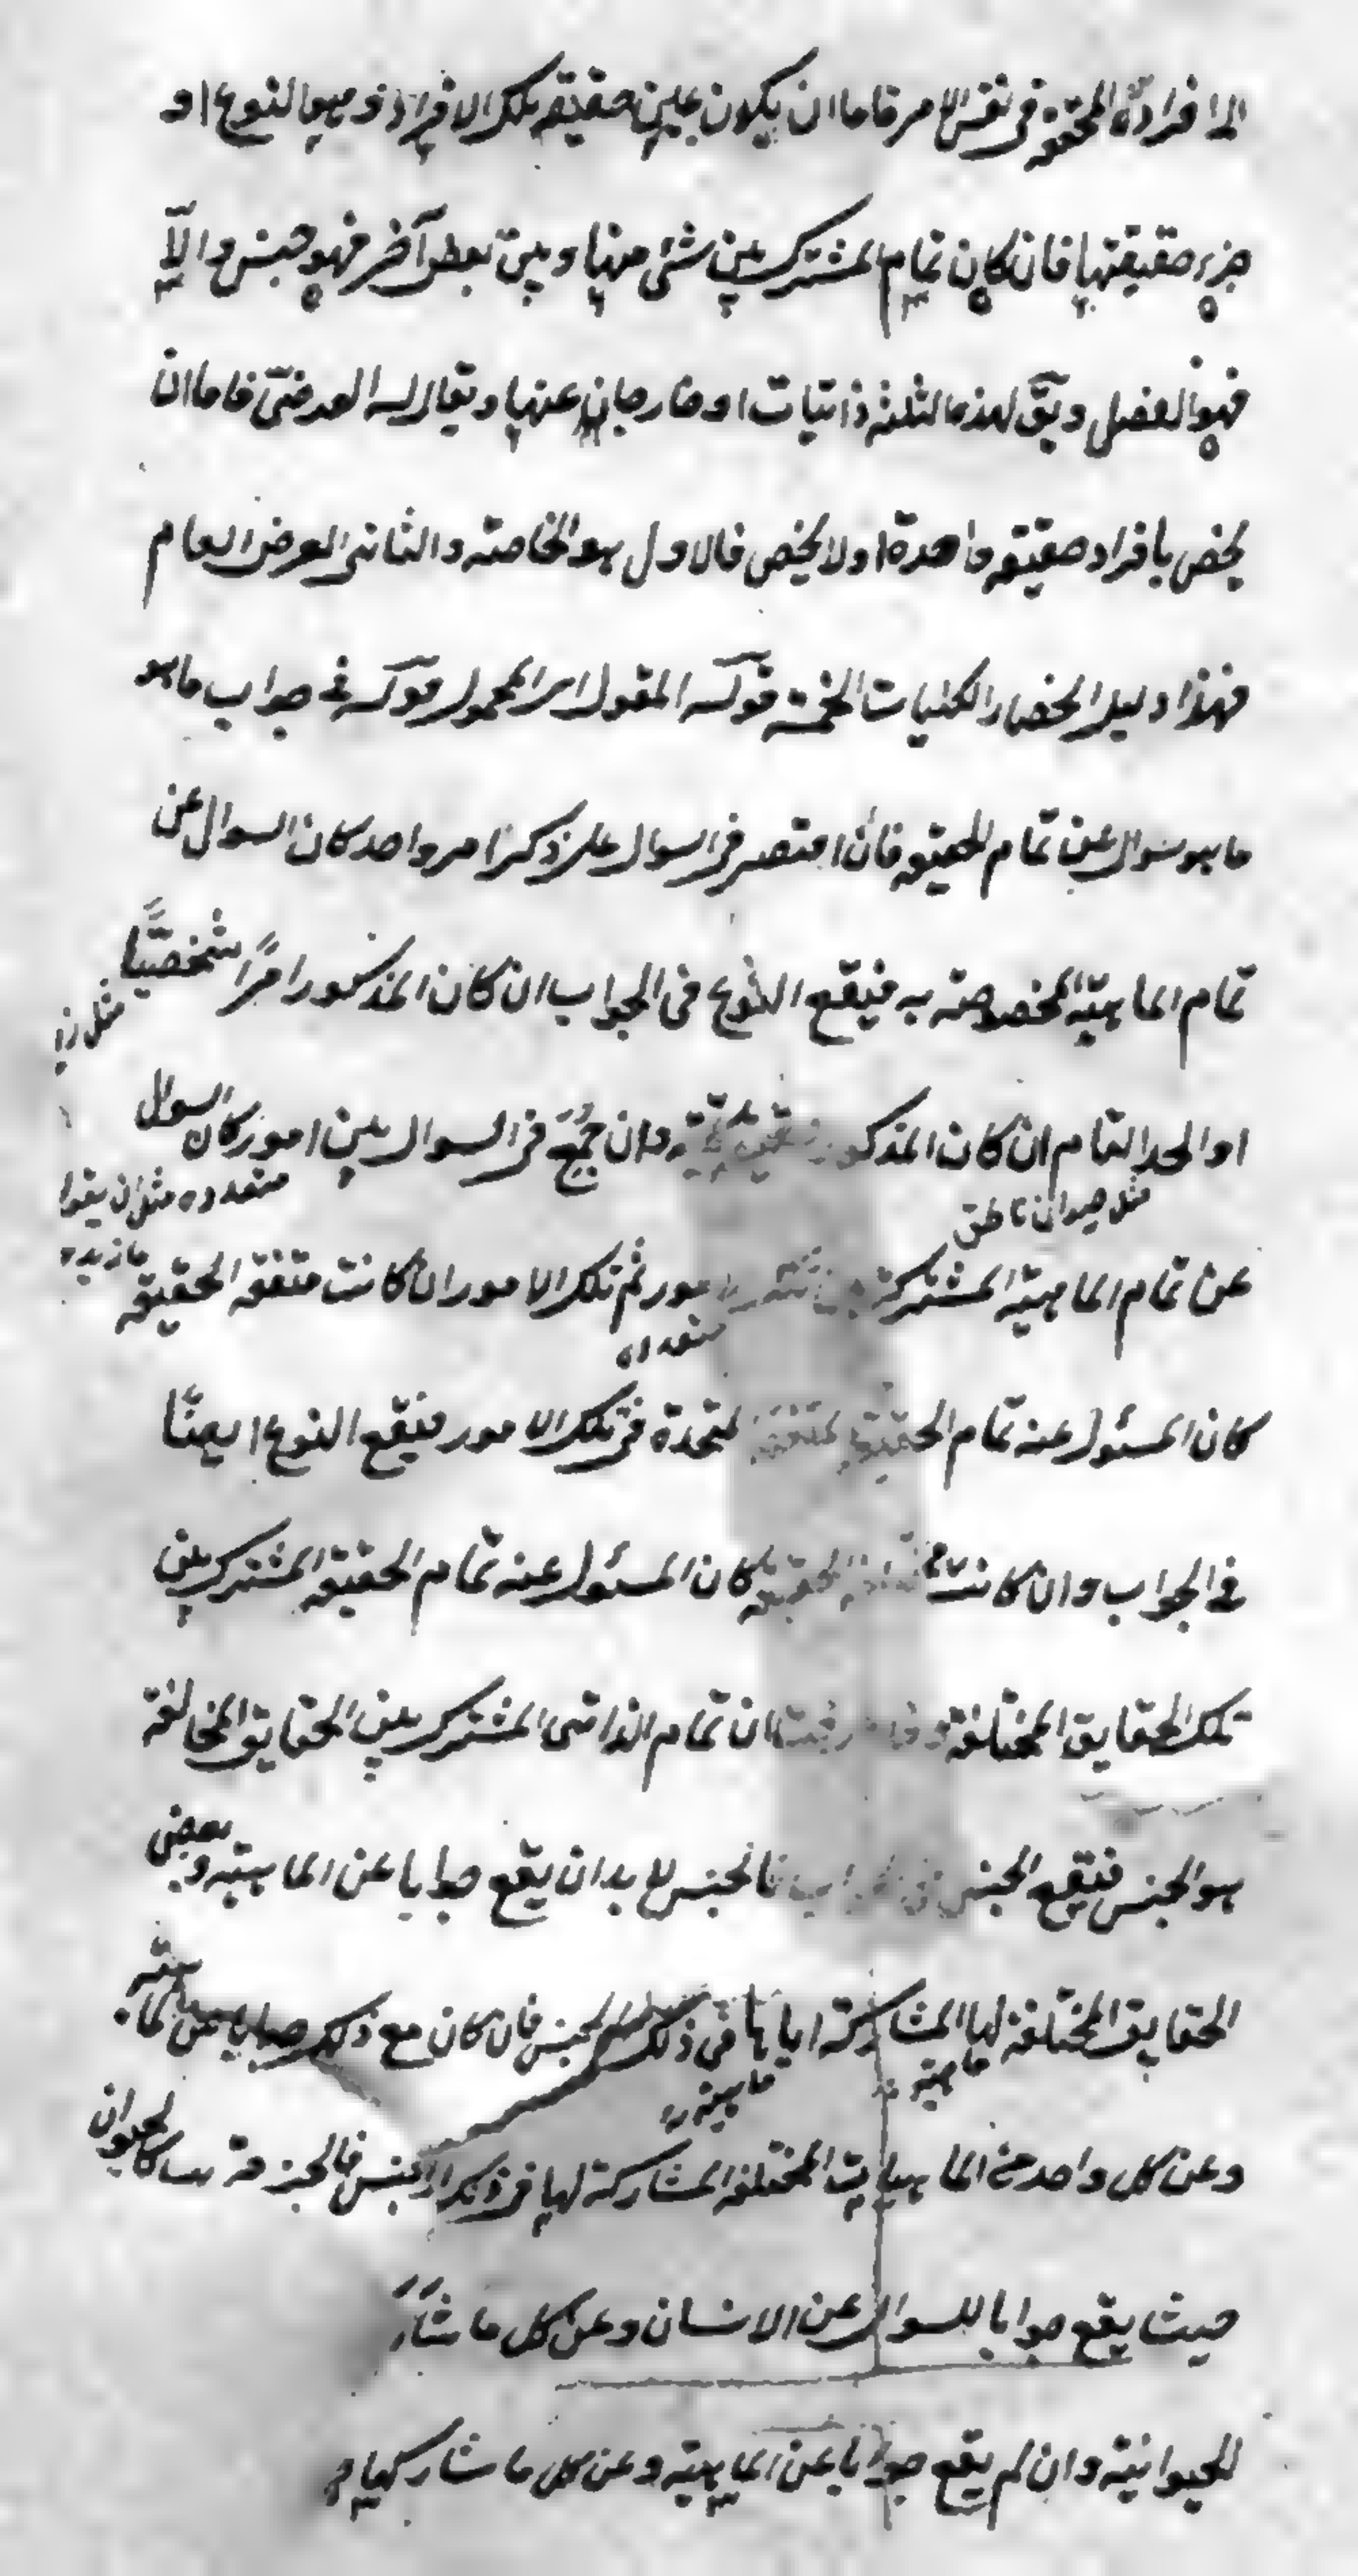 الى افراده المحققة فى نفس الامر فاما ان يكون عين حقيقة تلك الافراد وهو النوع او
جزء حقيقتها فان كان تمام المشترك بين شئ منها و بين بعض آخر فهو جنس و الّا
فهو الفصل و يق لهذه الثلثة ذاتيات او خارجا عنها و يقال له العرضىّ فاما ان
يختص بافراد حقيقة واحدة او لا يختص فالاول هو الخاصة و الثانى العرض العام
فهذا دليل انحصار الكليات الخمسة قوله المقول اى المحمول قوله فى جواب ما هو
ما هو سؤال عن تمام الحقيقة فان اقتصر فى السوال على ذكر امر واحد كان السوال عن
تمام الماهيّة المخصوصة به فيقع النوع فى الجواب ان كان المذكور امرًا شخصيًّا
مثل زيد
او الحد التام ان كان المذكور حقيقة كلية و ان جُمِعَ فى السوال بين امور كان السوال
متعدده مثل ان يقول
مثل حيوان ناطق
ما زيد و
عن تمام الماهيّة المشتركة بين تلك الامور ثم تلك الامور ان كانت متفقة الحقيقة
متعدده
كان المسئول عنه تمام الحقيقة المتفقة المتحدة فى تلك الامور فيقع النوع ايضًا
فى الجواب و ان كانت مختلفة الحقيقة كان المسئول عنه تمام الحقيقة المشترك بين
تلك الحقايق المختلفة و قد عرفت ان تمام الذاتى المشترك بين الحقايق المخالفة
هو الجنس فيقع الجنس فى الجواب فالجنس لا بد ان يقع جوابا عن الماهية و بعض
الحقايق المختلفة لها المشاركة اياها فى ذلك الجنس فان كان مع ذلك جوابا عن الماهية
ماهية
ماهية
و عن كل واحد من الماهيات المختلفة المشاركة لها فى ذلك الجنس فالجنس قريب كالحيوان
حيث يقع جوابا للسوال عن الانسان و عن كل ما شاركه
للحيوانية و ان لم يقع جوابا عن الماهية و عن كل ما شاركها